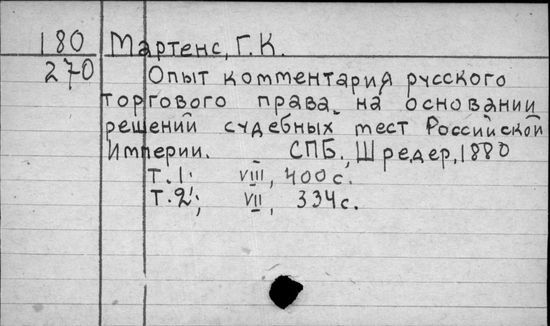 180 Мартенс, Г.К.
270 Опыт комментария русского
торгового права на основании
решений судебных мест Российской
Империи. СПБ., Шредер, 1880
Т.1; VIII, 400 с.
Т.2; VII, 334 с.